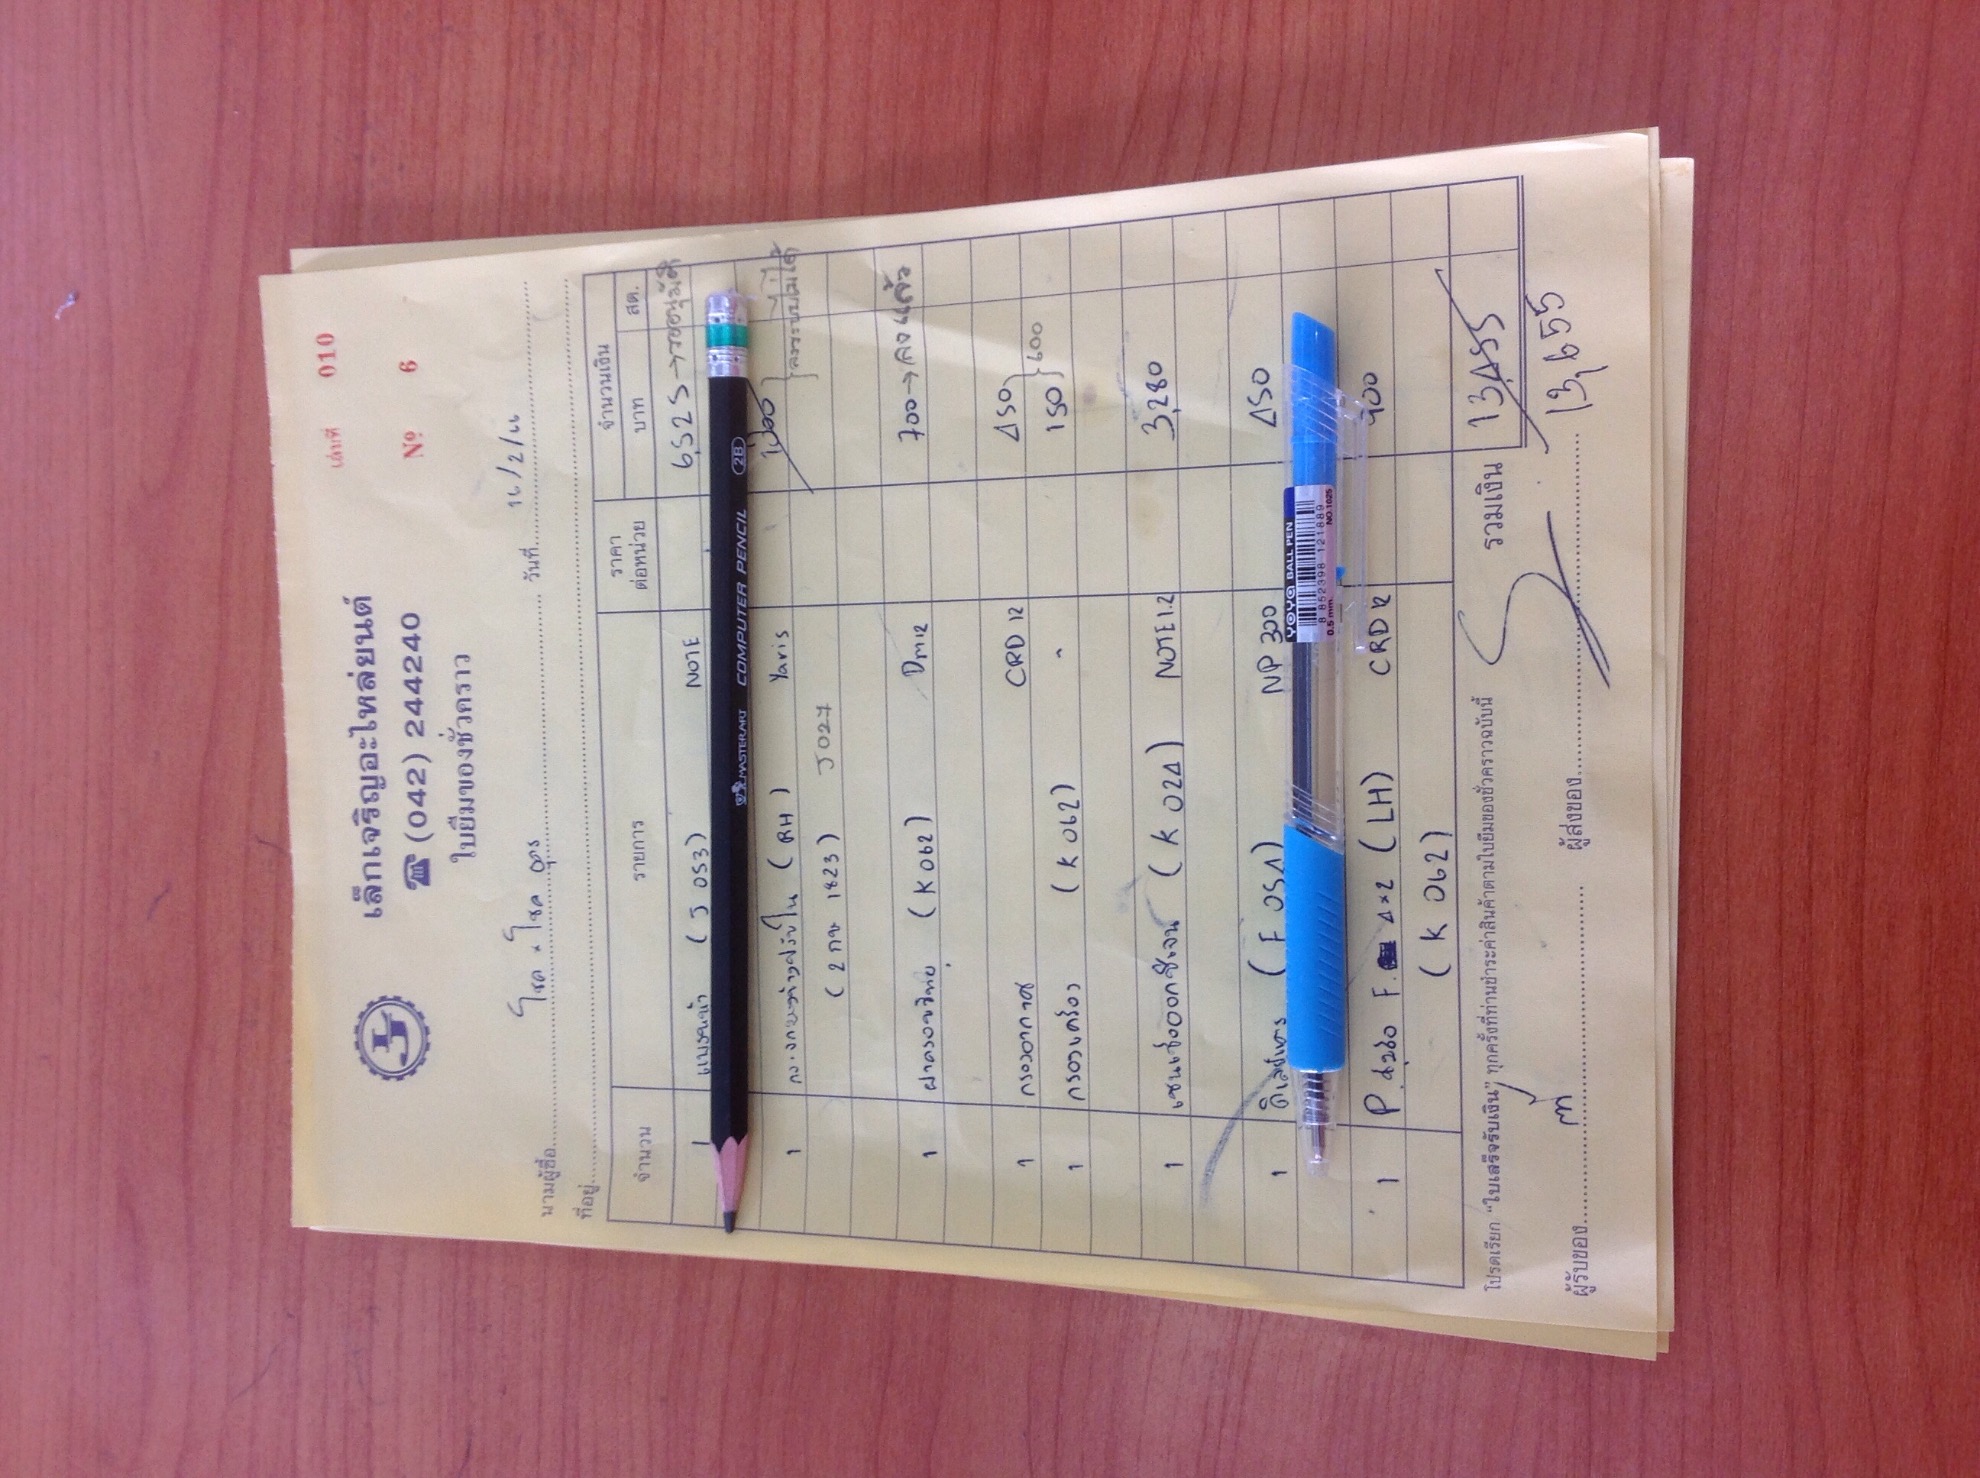 เล่มที่ 010
เล็กเจริญอะไหล่ยนต์
☎ (042) 244240
№ 6
ใบยืมของชั่วคราว
นามผู้ซื้อ โชค x โชค อุดร วันที่ 16/2/66
ที่อยู่
จำนวน รายการ ราคาต่อหน่วย จำนวนเงิน บาท สต.
1 (J 053) NOTE 6,525 → รออนุมัติ
MASTERART COMPUTER PENCIL 2B
1 (RH) Yaris
(2 กษ 1823) J027
1 (K 062) Dm12 700 → ลงแล้ว
1 กรองอากาศ CRD 12 450
1 กรองเครื่อง (K 062) " 150 } 600
1 เซนเซอร์ออกซิเจน (K 024) NOTE 1.2 3,280
1 (F 054) NP 300 450
YOYA BALL PEN
8 852398 121889
0.5 mm. NO.1025
1 P F. 4x2 (LH) CRD 12
(K 062)
โปรดเรียก "ใบเสร็จรับเงิน" ทุกครั้งที่ท่านชำระค่าสินค้าตามใบยืมของชั่วคราวฉบับนี้ รวมเงิน 13,455
13,655
ผู้รับของ ผู้ส่งของ